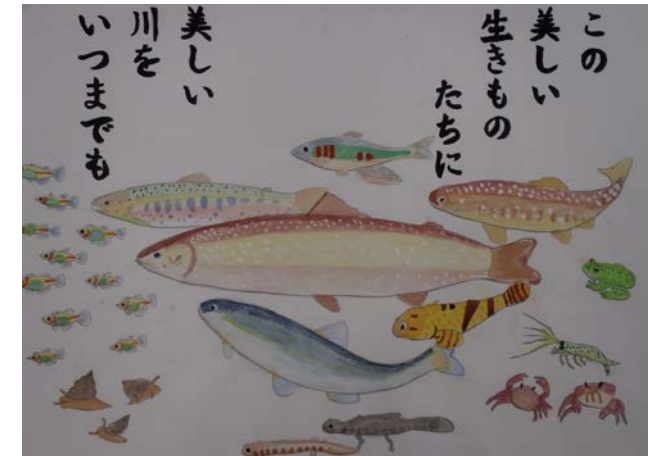 この
美しい
生きもの
たちに
美しい
川を
いつまでも